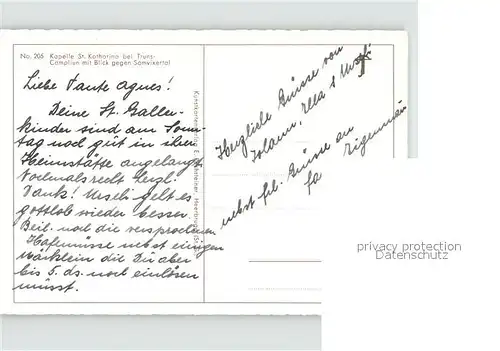 No. 205 Kapelle St. Katharina bei Truns-
Campliun mit Blick gegen Somvixertal
Liebe Tante Agnes!
Deine St. Galler-
kinder sind am Sonn-
tag noch gut in ihrer
Heimstätte angelangt.
Nochmals recht herzl.
Dank! Urseli geht es
gottlob wieder besser.
Beil. noch die versprochenen
nebst einigen
die Du aber
bis 5. ds. noch einlösen
müsst.
Herzliche Grüsse von
Ella &
nebst frl. Grüsse an
Fa
privacy protection
Datenschutz